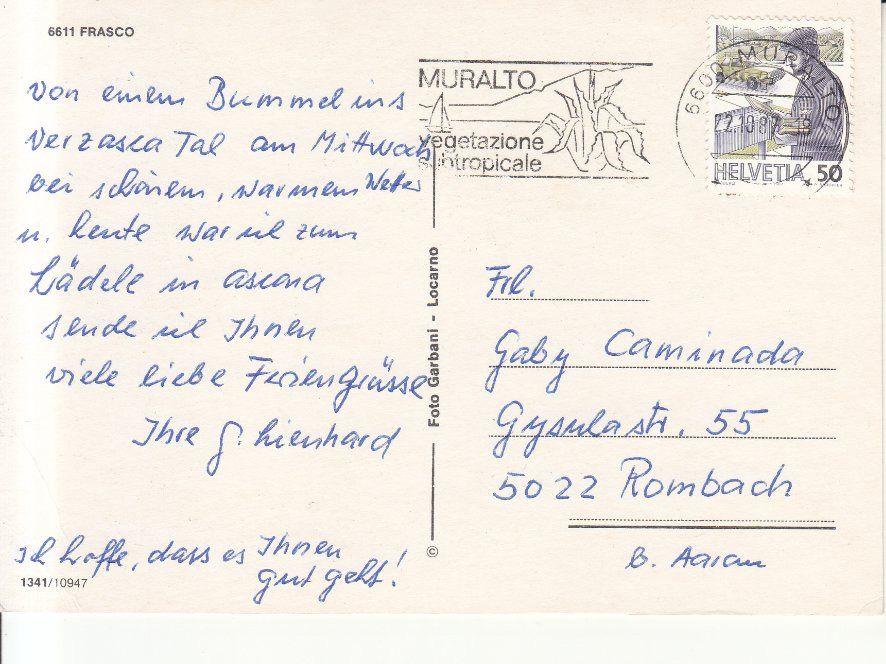 6611 FRASCO
von einem Bummel ins
Verzasca Tal am Mittwoch
bei schönem, warmem Wetter
u. heute war ich zum
Lädele in Ascona
sende ich Ihnen
viele liebe Feriengrüsse
Ihre G. Lienhard
Ich hoffe, dass es Ihnen
gut geht!
1341/10947
Foto Garbani - Locarno
©
MURALTO
vegetazione
subtropicale
6600 MURALTO
22.10.87
HELVETIA 50
Frl.
Gaby Caminada
Gysulastr. 55
5022 Rombach
b. Aarau